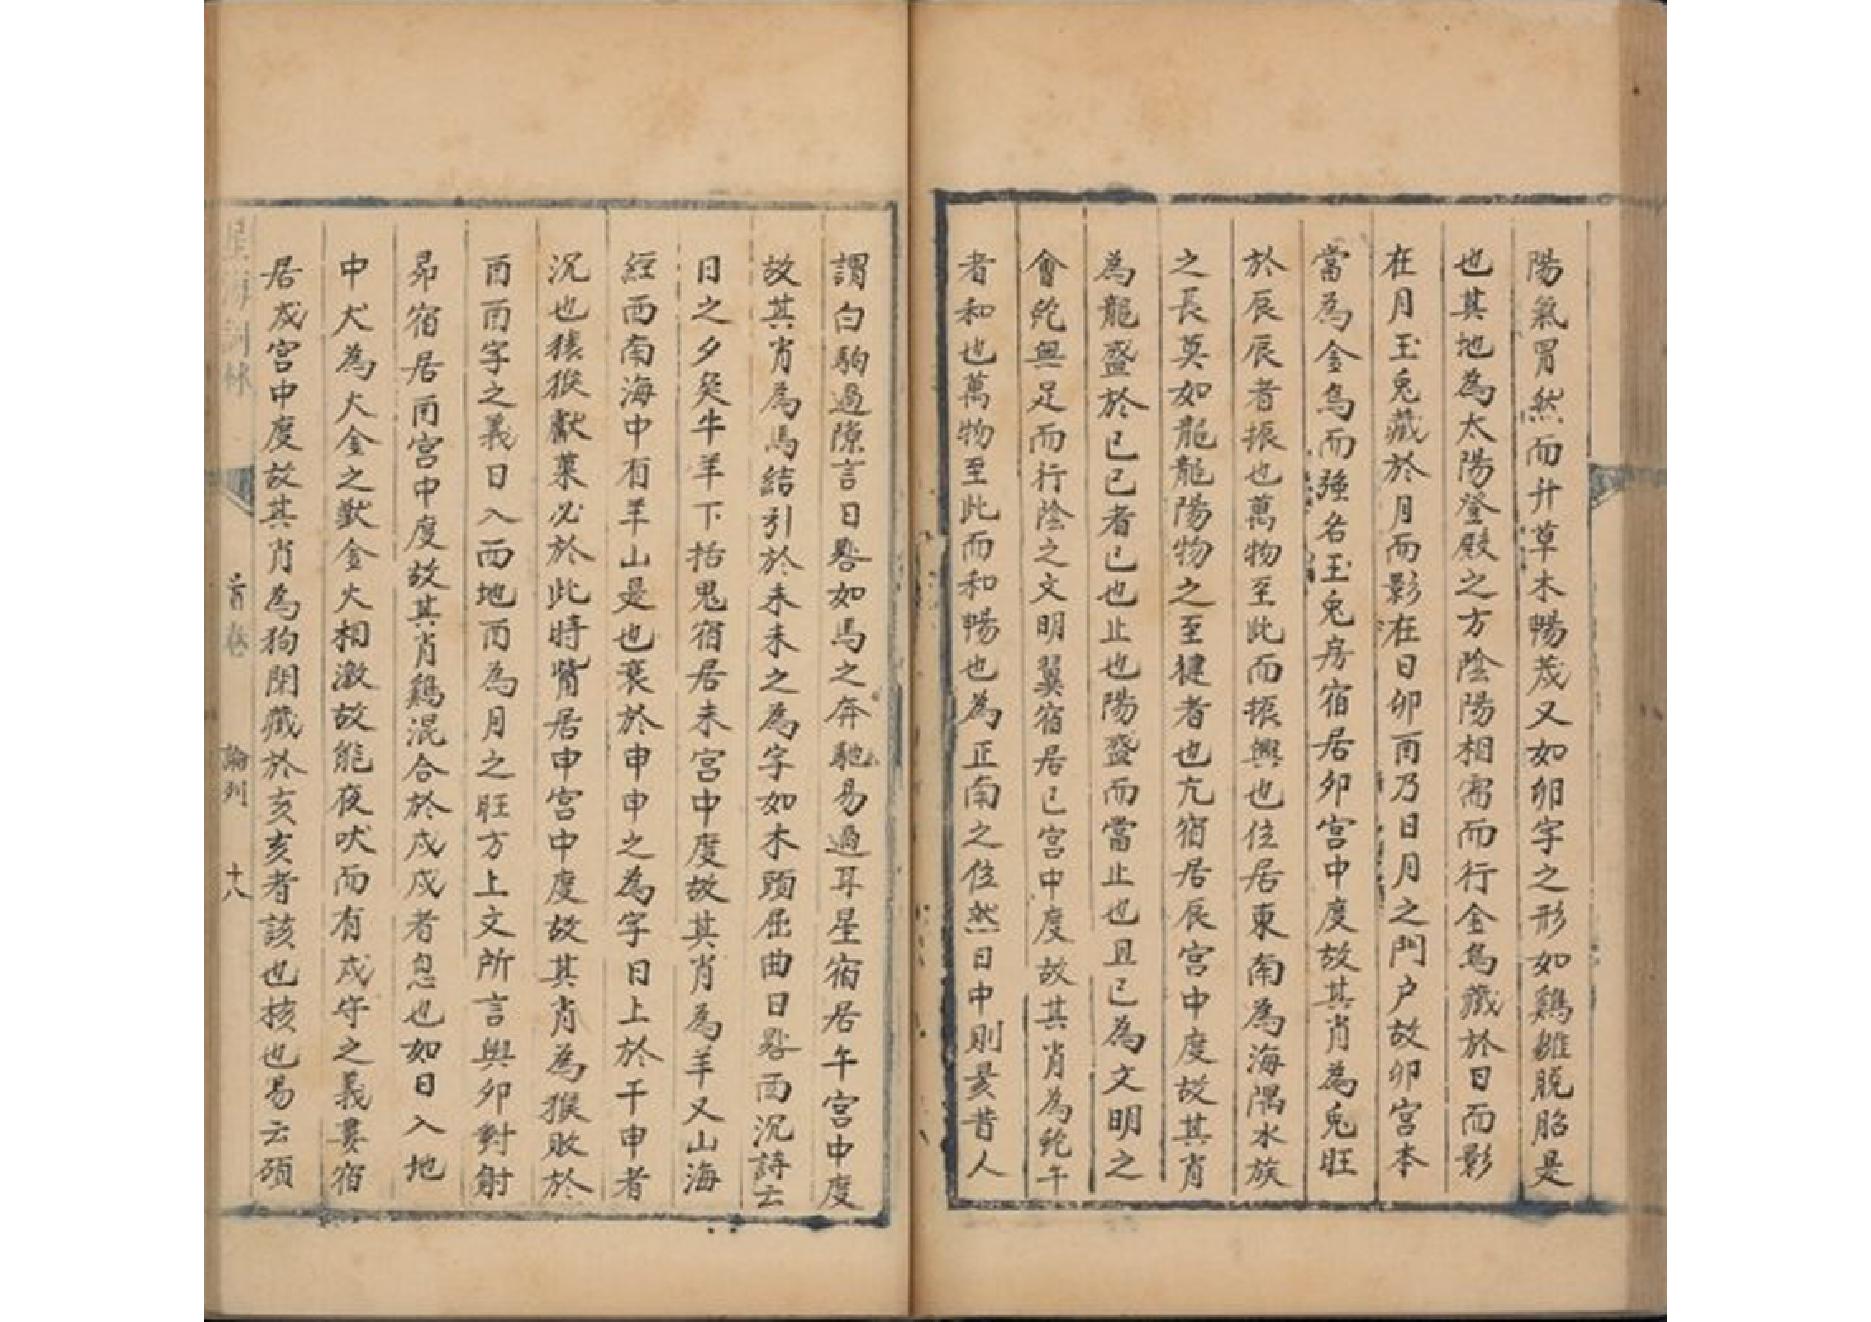 陽氣冒然而升草木暢茂又如卵字之形如鷄雛脫胎是
也其地為太陽登殿之方陰陽相需而行金烏藏於日而影
在月玉兎藏於月而影在日卯酉乃日月之門户故卯宮本
當為金烏而強名玉兎房宿居卯宮中度故其肖為兎旺
於辰辰者振也萬物至此而振興也位居東南為海隅水族
之長莫如龍龍陽物之至健者也亢宿居辰宮中度故其肖
為龍盛於巳巳者已也止也陽盛而當止也且巳為文明之
會蛇無足而行陰之文明翼宿居巳宮中度故其肖為蛇午
者和也萬物至此而和暢也為正南之位然日中則昃昔人
謂白駒過隙言日晷如馬之奔馳易過耳星宿居午宮中度
故其肖為馬結引於未未之為字如木頭屈曲日晷西沉詩云
日之夕矣牛羊下括鬼宿居未宮中度故其肖為羊又山海
經西南海中有羊山是也衰於申申之為字日上於干申者
沉也猿猴獻菓必於此時觜居申宮中度故其肖為猴敗於
酉酉字之義日入西地西為月之旺方上文所言與卯對射
昴宿居酉宮中度故其肖鷄混合於戌戌者息也如日入地
中犬為火金之獸金火相激故能夜吠而有戍守之義婁宿
居戌宮中度故其肖為狗閉藏於亥亥者該也核也易云碩
星海詞林
首卷
論列
十八